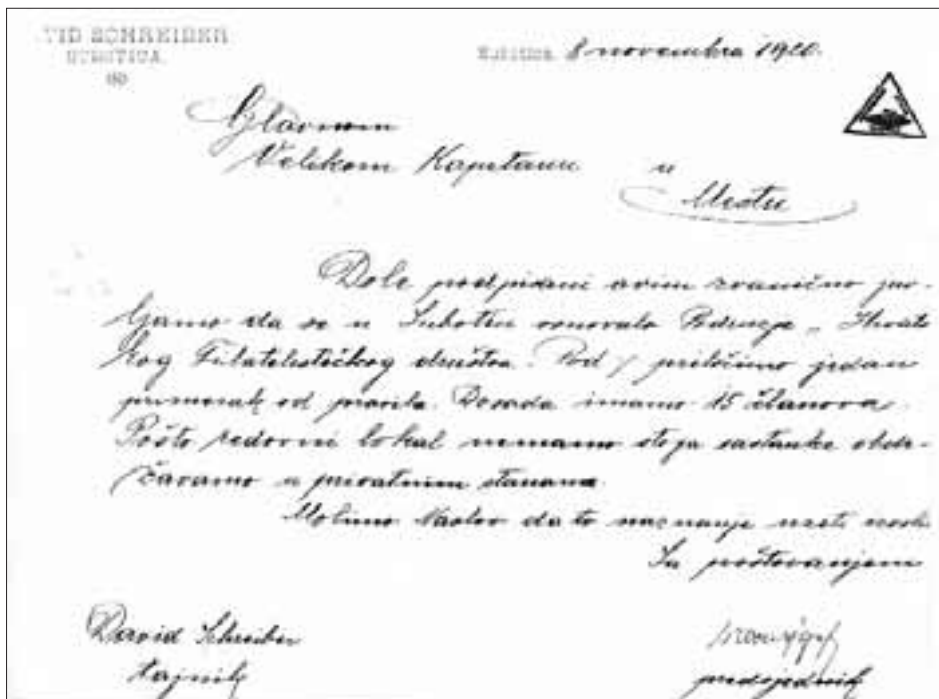 VID SCHREIBER
SUBOTICA
Subotica, 8 novembra 1920.
Glavnom
Velikom Kapetanu u
Mestu
Dole podpisani ovim zvanično jav-
ljamo da se u Subotici osnovalo Područje „Hrvats
kog Filatelističkog društva. Pod / priložimo jedan
primerak od pravila. Dosada imamo 15 članova.
Pošto redovni lokal nemamo sto ja sastanke obdr-
žavamo u privatnim stanama
Molimo Naslov da to na znanje uzeti
Sa poštovanjem
David Schreiber
tajnik predsjednik